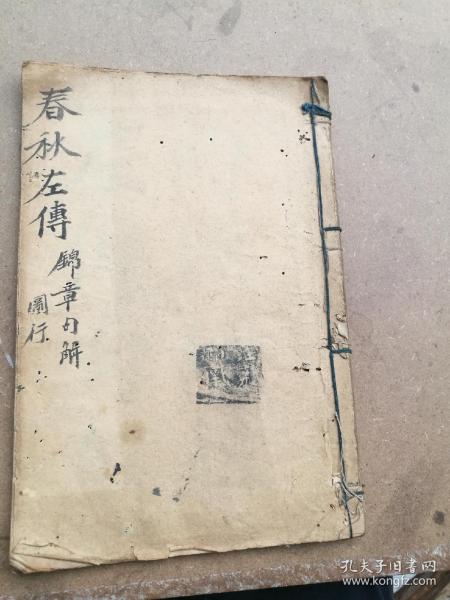 春秋左傳
錦章句解
圖行
孔夫子旧书网
www.kongfz.com